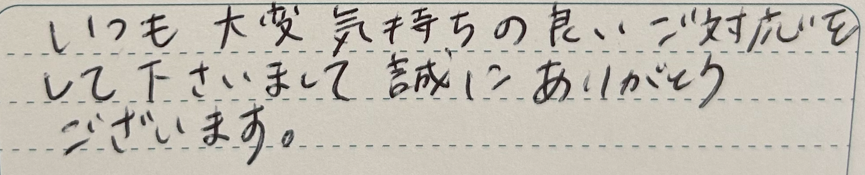 いつも大変気持ちの良いご対応を
して下さいまして誠にありがとう
ございます。